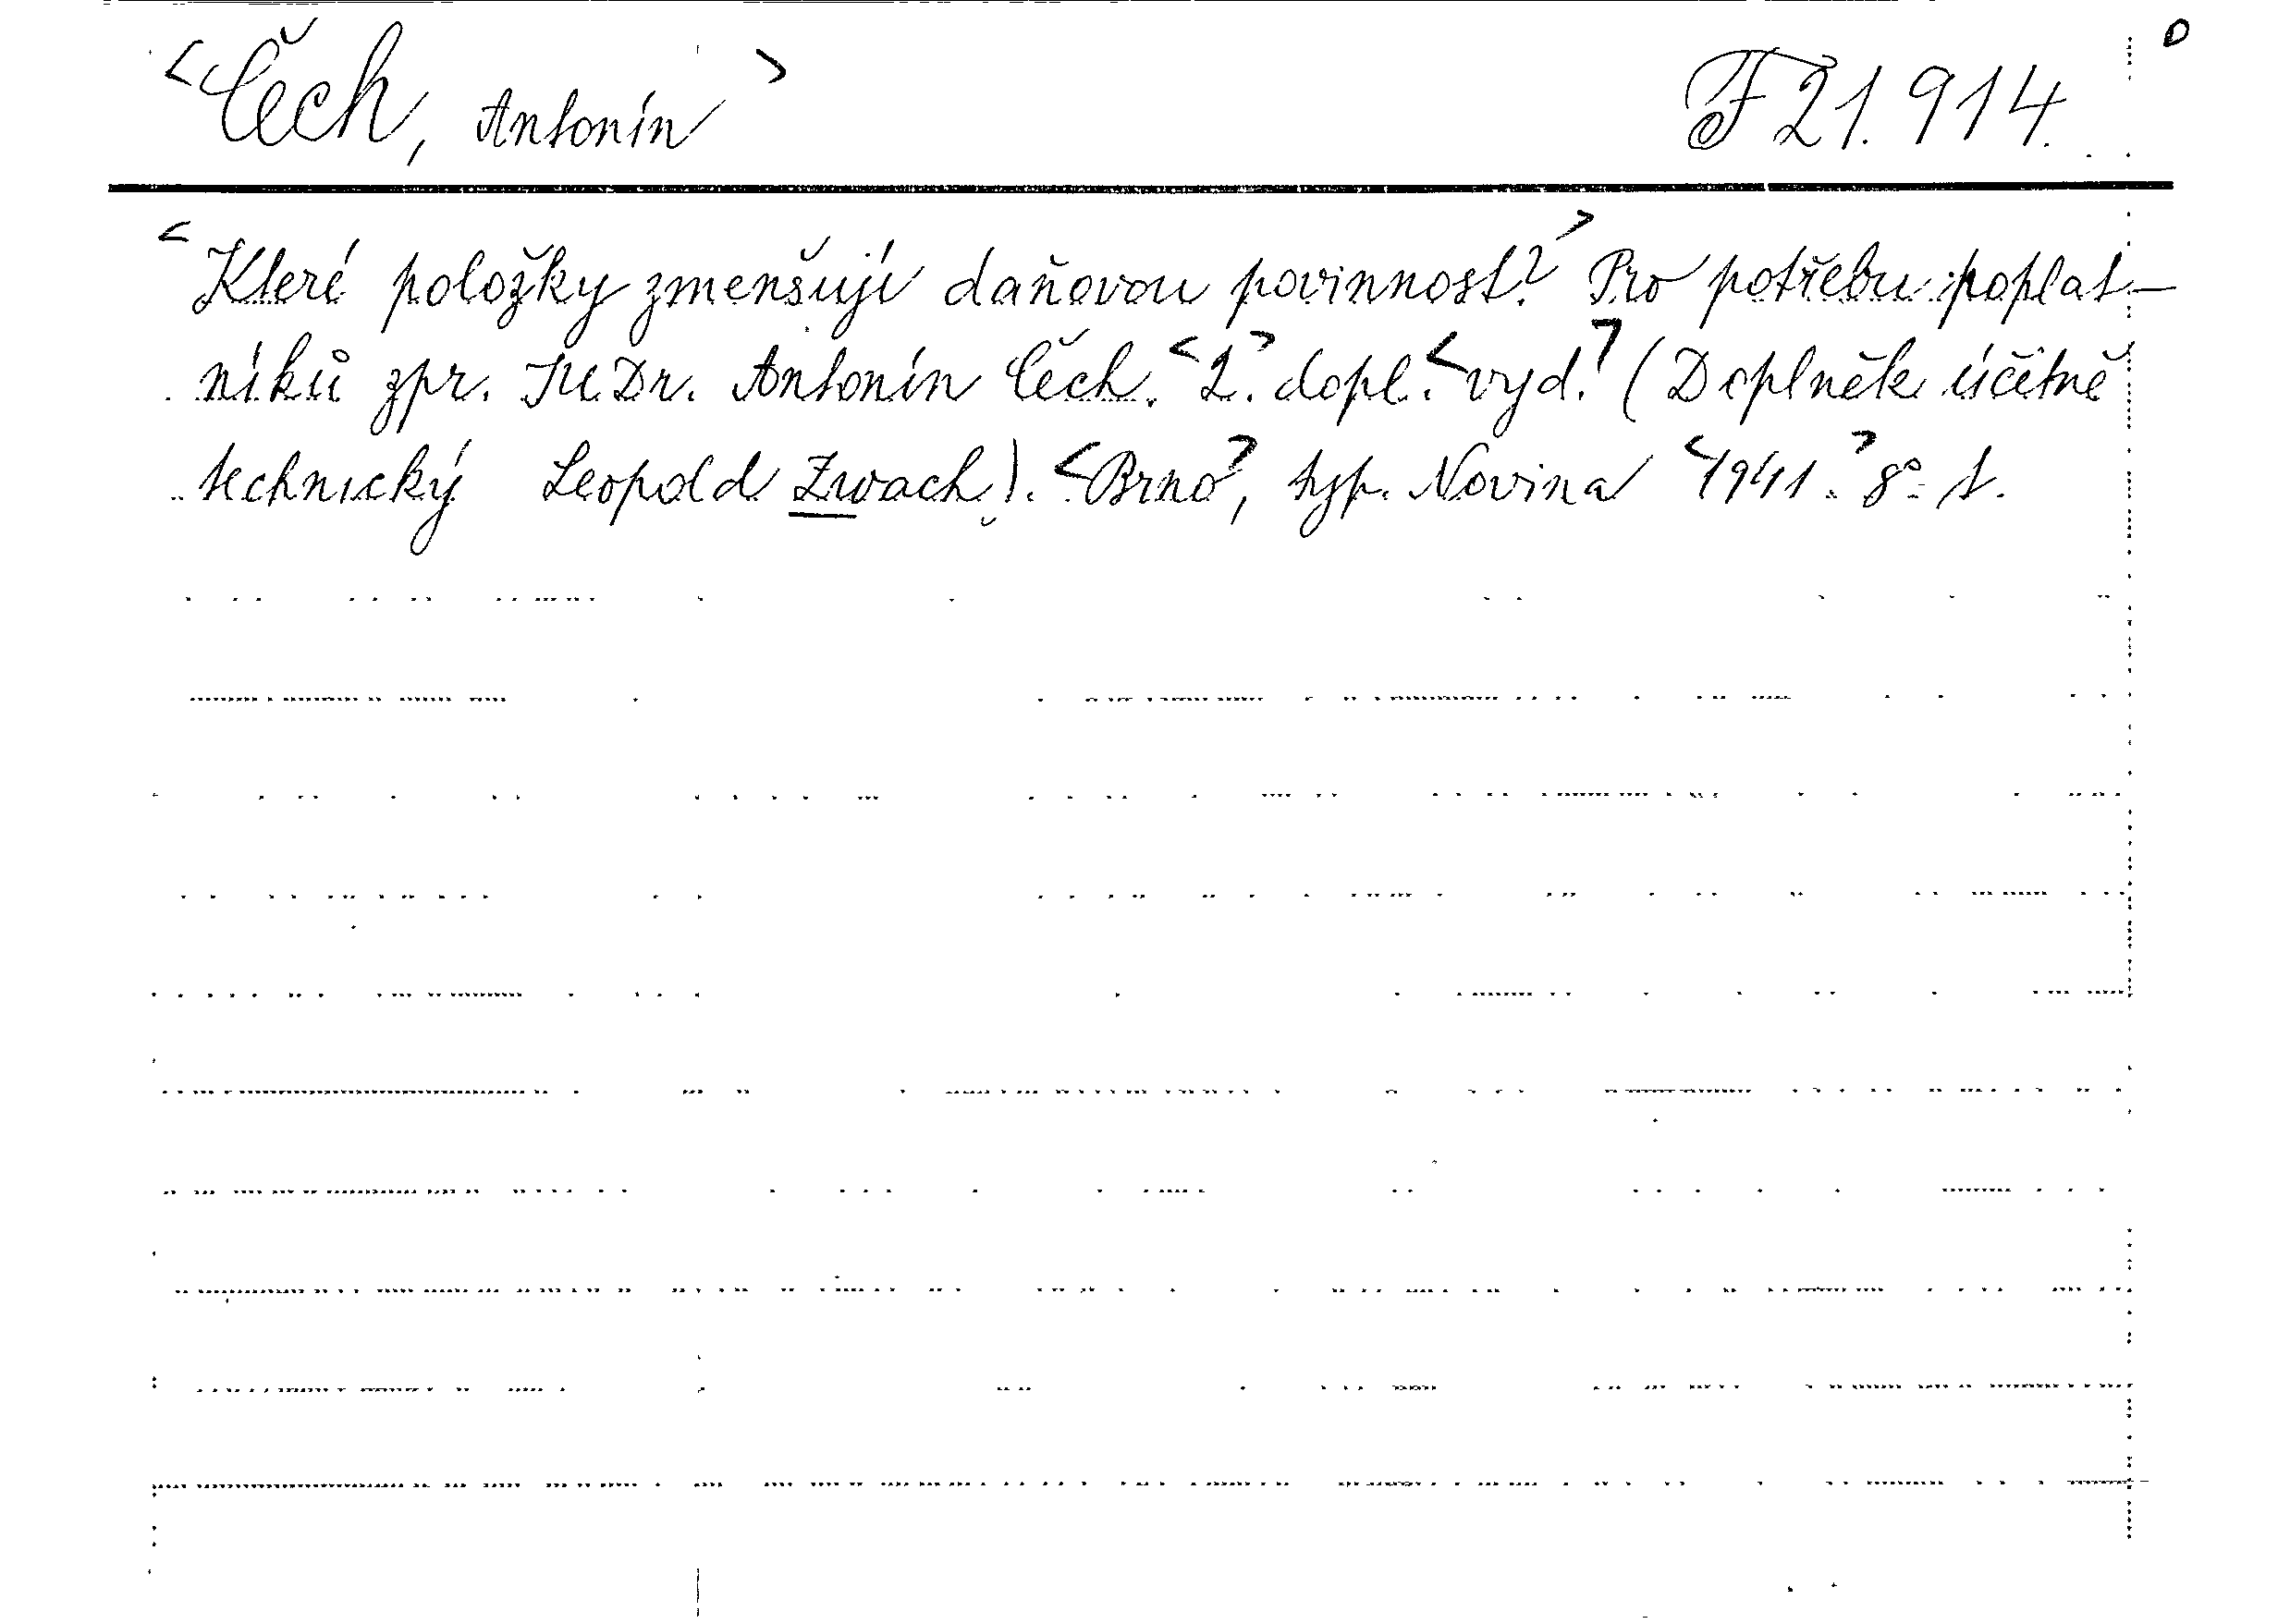 <Čech, Antonín> F 21.914.
<Které položky zmenšují daňovou povinnost?> Pro potřebu poplat-
níků zpr. JUDr. Antonín Čech. <2.> dopl. <vyd.> (Doplněk účetně
technický Leopold Zwach). <Brno>, typ. Novina <1941.> 8°. t.